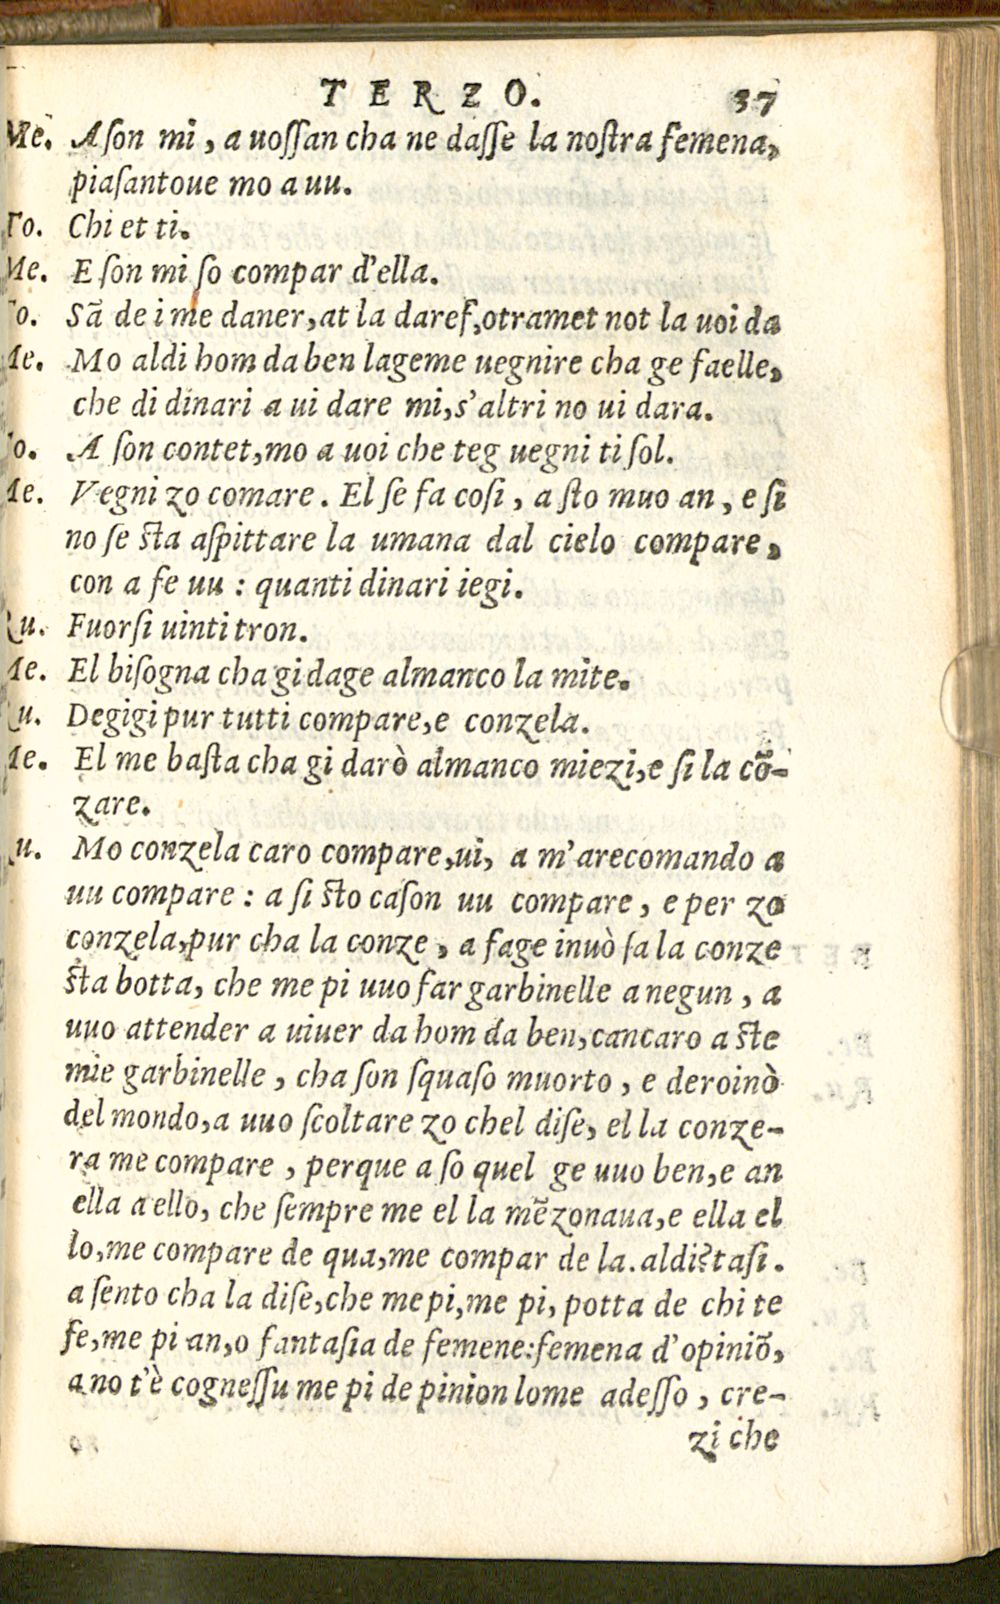 TERZO. 37
Me. A son mi, a uoſſan cha ne daſſe la noſtra femena,
piaſantoue mo a uu.
To. Chi et ti.
Me. E ſon mi ſo compar d'ella.
To. Sã de i me daner, at la dareſ, otramet not la uoi da
Me. Mo aldi hom da ben lageme uegnire cha ge faelle,
che di dinari a ui dare mi, s'altri no ui dara.
To. A ſon contet, mo a uoi che teg uegni ti ſol.
Me. Vegni zo comare. El ſe fa coſi, a ſto muo an, e ſi
no ſe ſta aſpittare la umana dal cielo compare,
con a fe uu: quanti dinari iegi.
Ru. Fuorſi uinti tron.
Me. El biſogna cha gi dage almanco la mite.
Ru. Degigi pur tutti compare, e conzela.
Me. El me baſta cha gi darò almanco miezi, e ſi la cõ-
zare.
Ru. Mo conzela caro compare, ui, a m'arecomando a
uu compare: a ſi ſto caſon uu compare, e per zo
conzela, pur cha la conze, a fage inuò ſa la conze
ſta botta, che me pi uuo far garbinelle a negun, a
uuo attender a uiuer da hom da ben, cancaro a ſte
mie garbinelle, cha ſon ſquaſo muorto, e deroinò
del mondo, a uuo ſcoltare zo chel diſe, el la conze-
ra me compare, perque a ſo quel ge uuo ben, e an
ella a ello, che ſempre me el la mẽzonaua, e ella el
lo, me compare de qua, me compar de la. aldi ſtaſi.
a ſento cha la diſe, che me pi, me pi, potta de chi te
fe, me pi an, o fantaſia de femene: femena d'opiniõ,
a no t'è cogneſſu me pi de pinion lome adeſſo, cre-
zi che